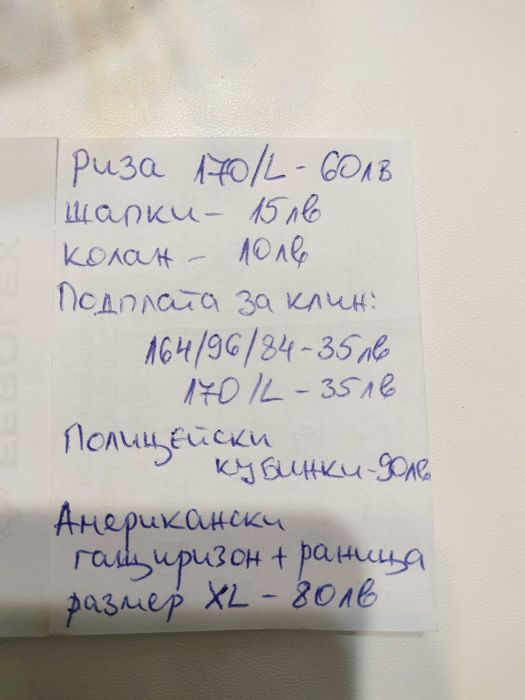 Риза 170/L - 60лв
шапки - 15лв
колан - 10лв
Подплата за клин:
164/96/84 - 35лв
170/L - 35лв
Полицейски
кубинки - 90лв
Американски
гащиризон + раница
размер XL - 80лв